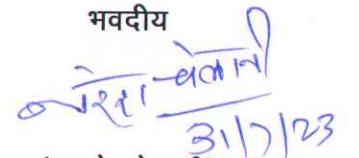 भवदीय
नरेश चेलानी
31/7/23